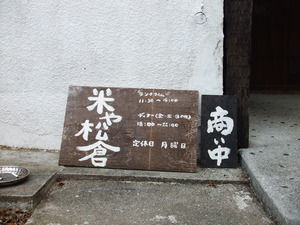 米や松倉
ランチタイム
11:30〜15:00
ディナー(金・土・日のみ)
18:00〜22:00
定休日 月曜日
商い中